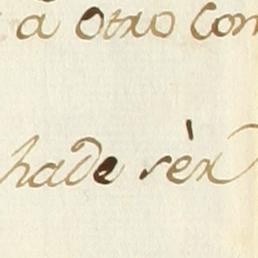 a otro con
hade sèr